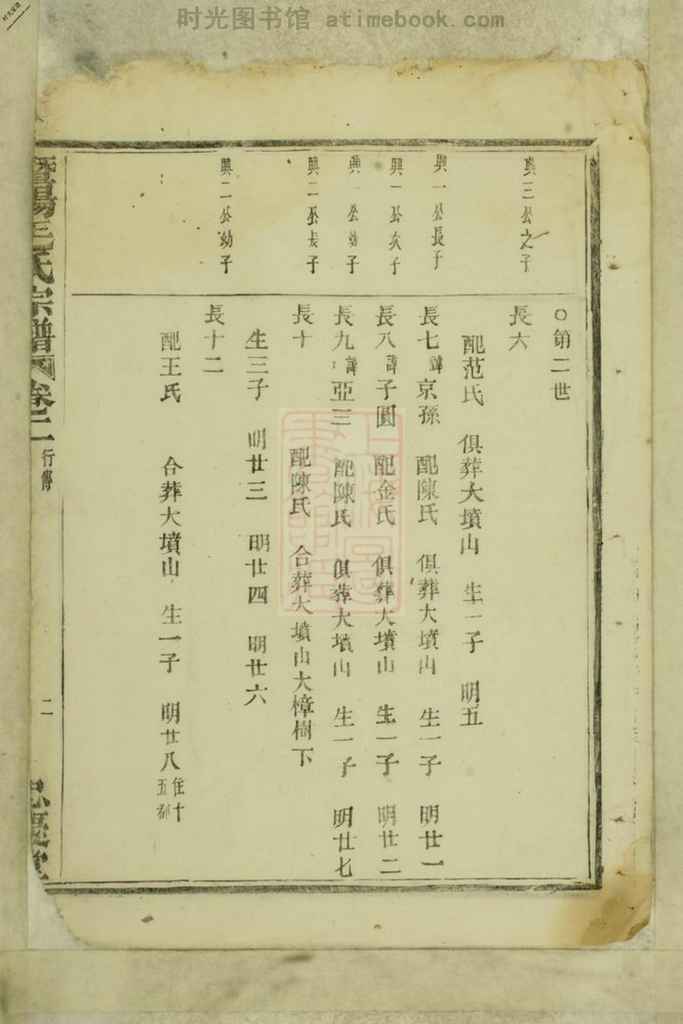 时光图书馆 atimebook.com
興三公之子
興一公長子
興一公次子
興一公幼子
興二公長子
興二公幼子
○第二世
長六
配范氏 俱葬大墳山 生一子 明五
長七諱京孫 配陳氏 俱葬大墳山 生一子 明廿一
長八諱子圓 配金氏 俱葬大墳山 生一子 明廿二
長九諱亞三 配陳氏 俱葬大墳山 生一子 明廿七
長十 配陳氏 合葬大墳山大樟樹下
生三子 明廿三 明廿四 明廿六
長十二
配王氏 合葬大墳山 生一子 明廿八住十五都
暨陽 氏宗譜 卷二 行傳
二